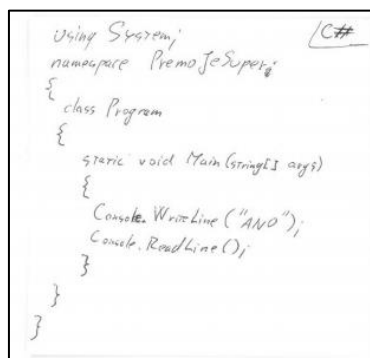 using System;
C#
namespace PremoJeSuper;
{
class Program
{
static void Main(string[] args)
{
Console.WriteLine("ANO");
Console.ReadLine();
}
}
}